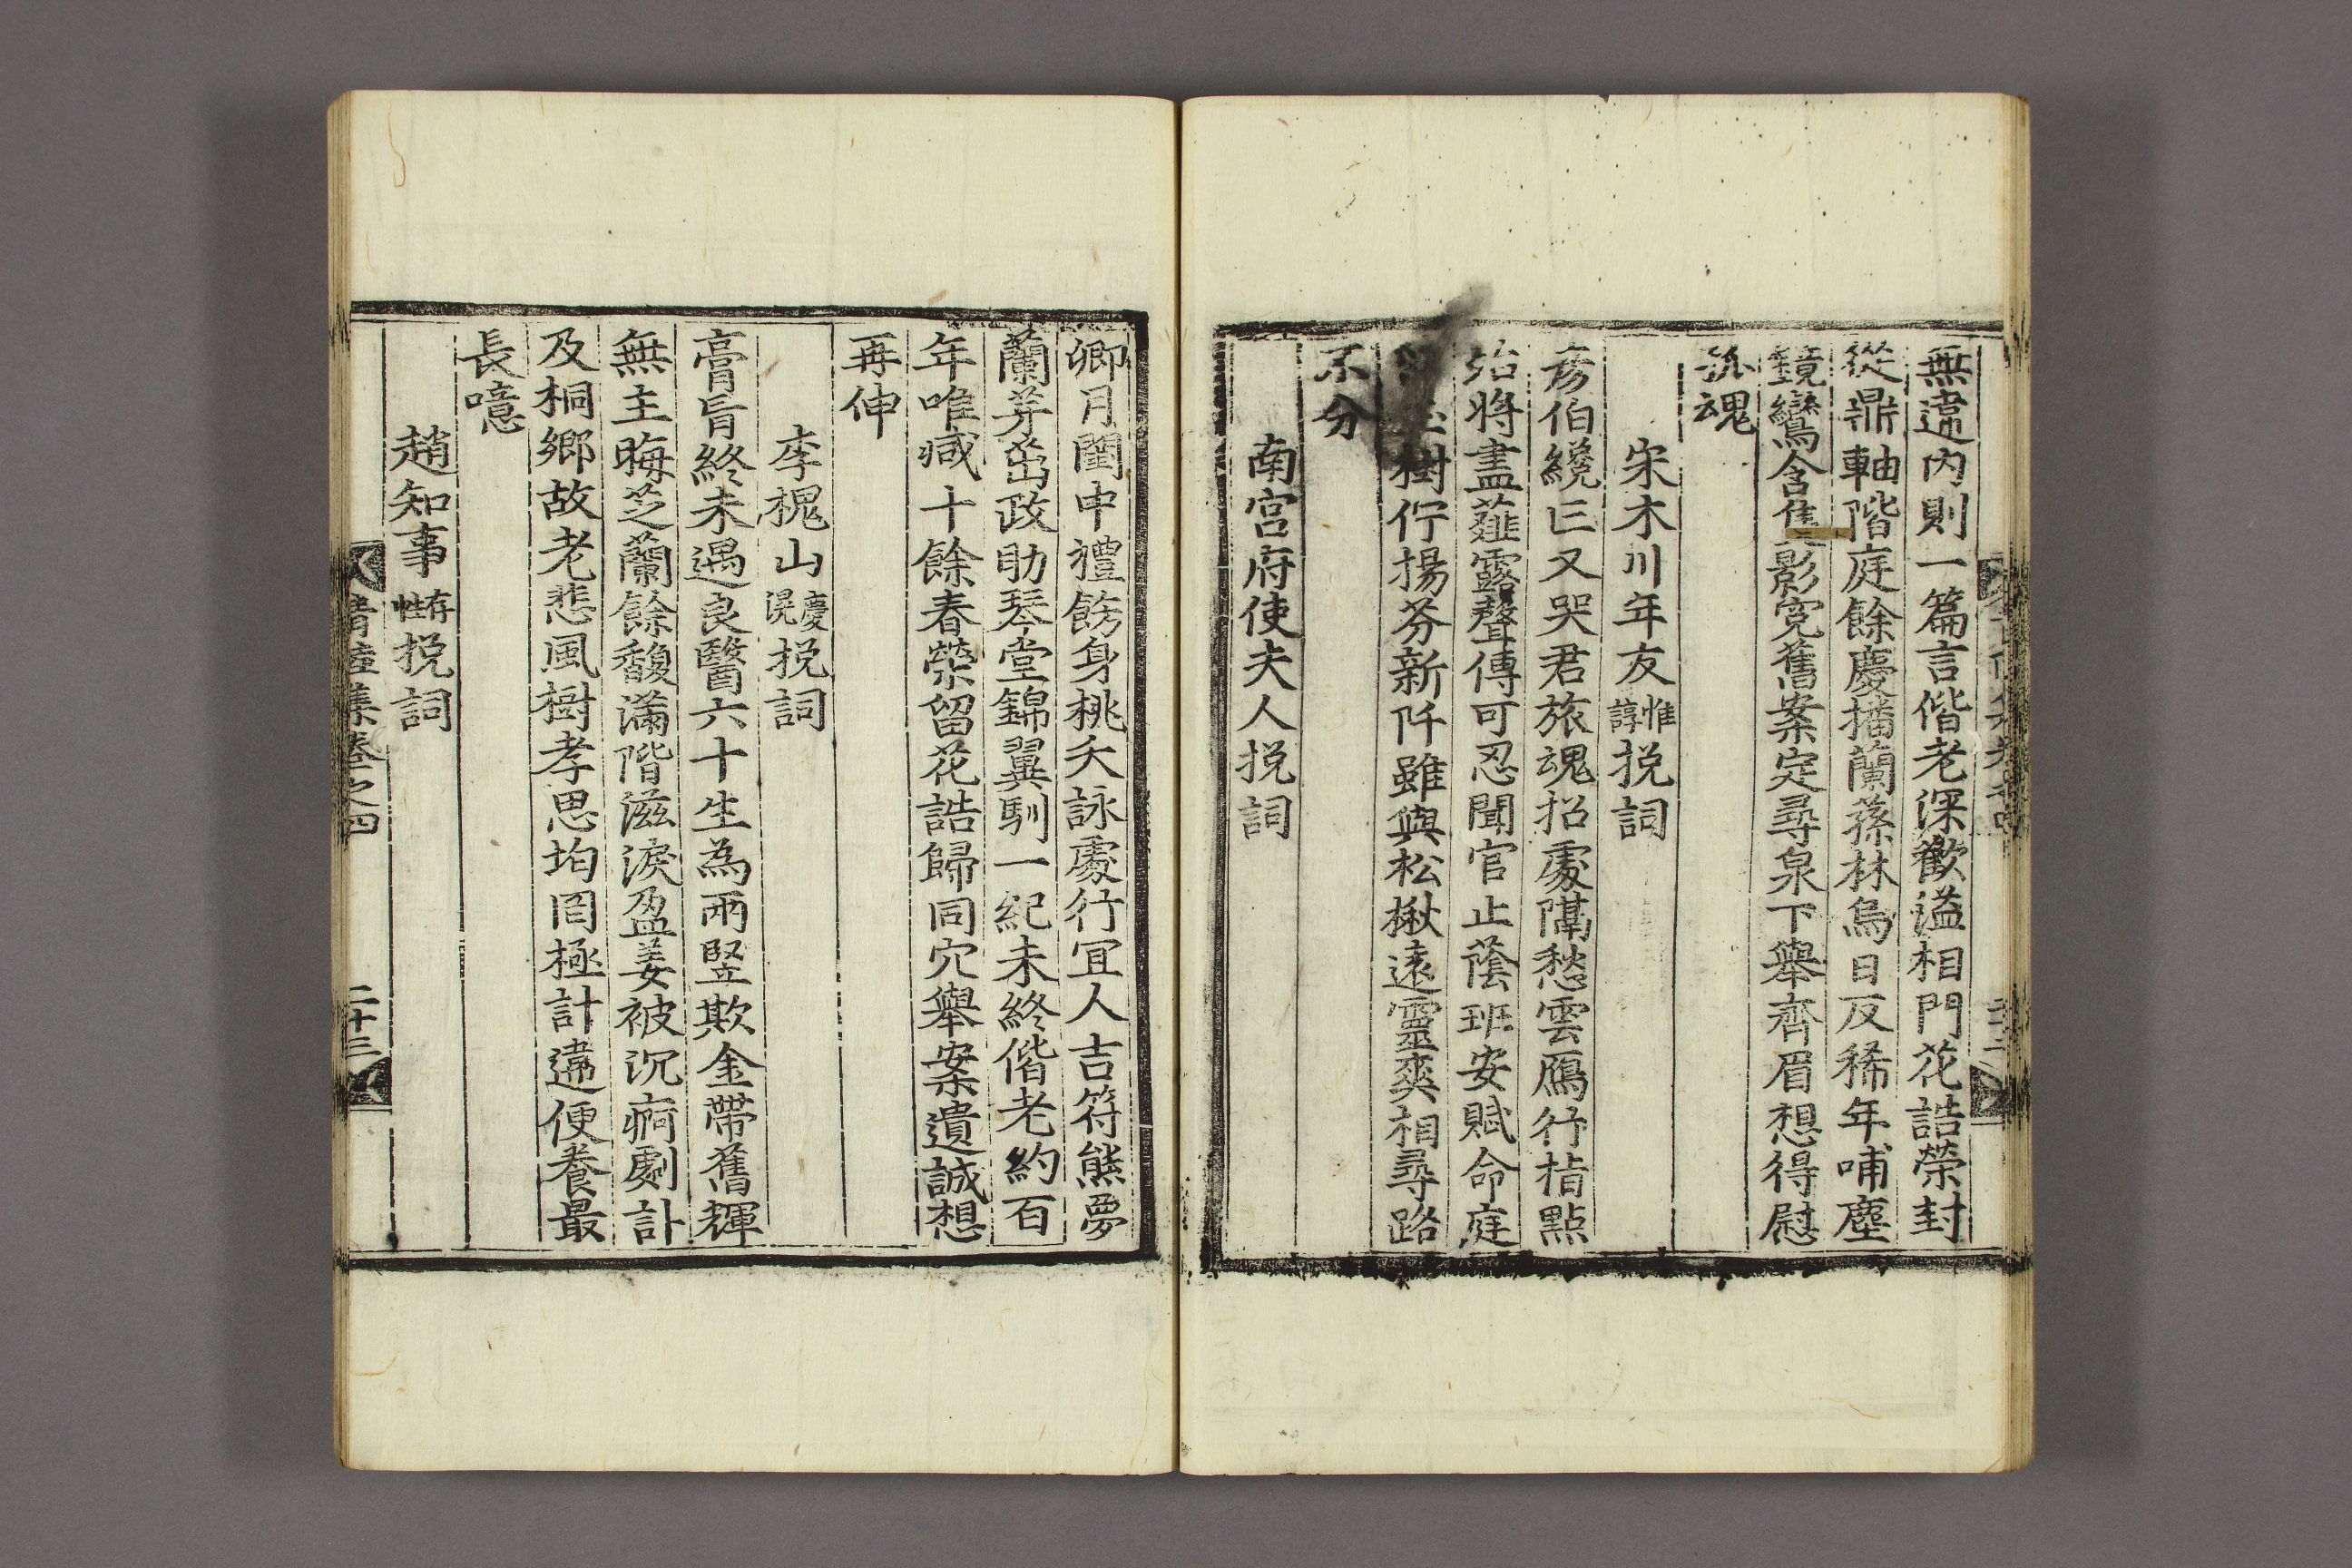 無違內則一篇言偕老深歡溢相門花誥榮封
從鼎軸階庭餘慶播蘭蓀林烏日反稀年哺塵
鏡鸞含隻影寃舊案定尋泉下擧齊眉想得慰
孤魂
宋木川年友惟諄挽詞
彦伯纔亡又哭君旅魂招處隔愁雲鴈行指點
殆將盡薤露聲傳可忍聞官止蔭班安賦命庭
樹佇揚芬新阡雖與松楸遠靈爽相尋路
不分
南宮府使夫人挽詞
卿月閨中禮飭身桃夭詠處行宜人吉符熊夢
蘭芽茁政助琴堂錦翼馴一紀未終偕老約百
年唯減十餘春榮留花誥歸同穴擧案遺誠想
再伸
李槐山慶滉挽詞
膏肓終未遇良醫六十生為兩竪欺金帶舊輝
無主晦芝蘭餘馥滿階滋淚盈姜被沉痾劇訃
及桐鄉故老悲風樹孝思均罔極計違便養最
長噫
趙知事存性挽詞
集卷之四
二十三